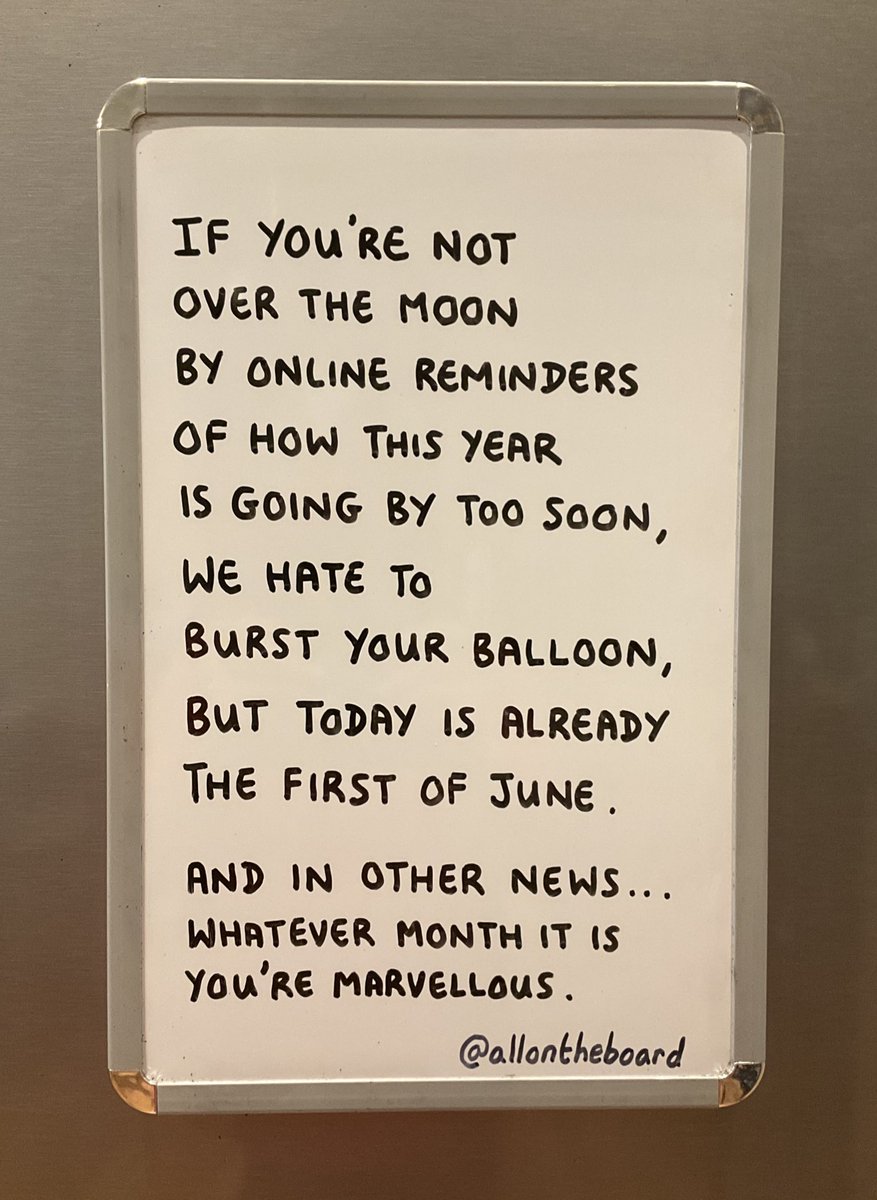 IF YOU'RE NOT
OVER THE MOON
BY ONLINE REMINDERS
OF HOW THIS YEAR
IS GOING BY TOO SOON,
WE HATE TO
BURST YOUR BALLOON,
BUT TODAY IS ALREADY
THE FIRST OF JUNE.
AND IN OTHER NEWS...
WHATEVER MONTH IT IS
YOU'RE MARVELLOUS.
@allontheboard